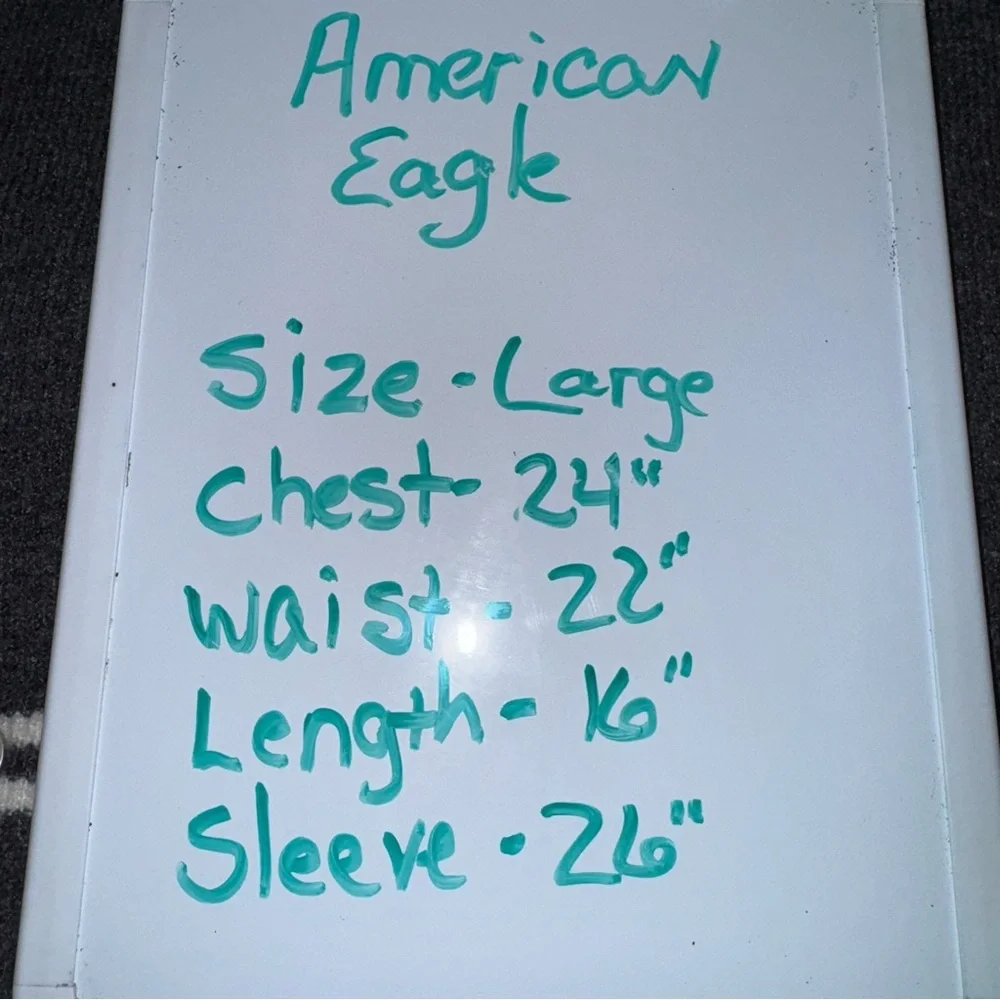 American
Eagle
Size - Large
Chest - 24"
Waist - 22"
Length - 16"
Sleeve - 26"